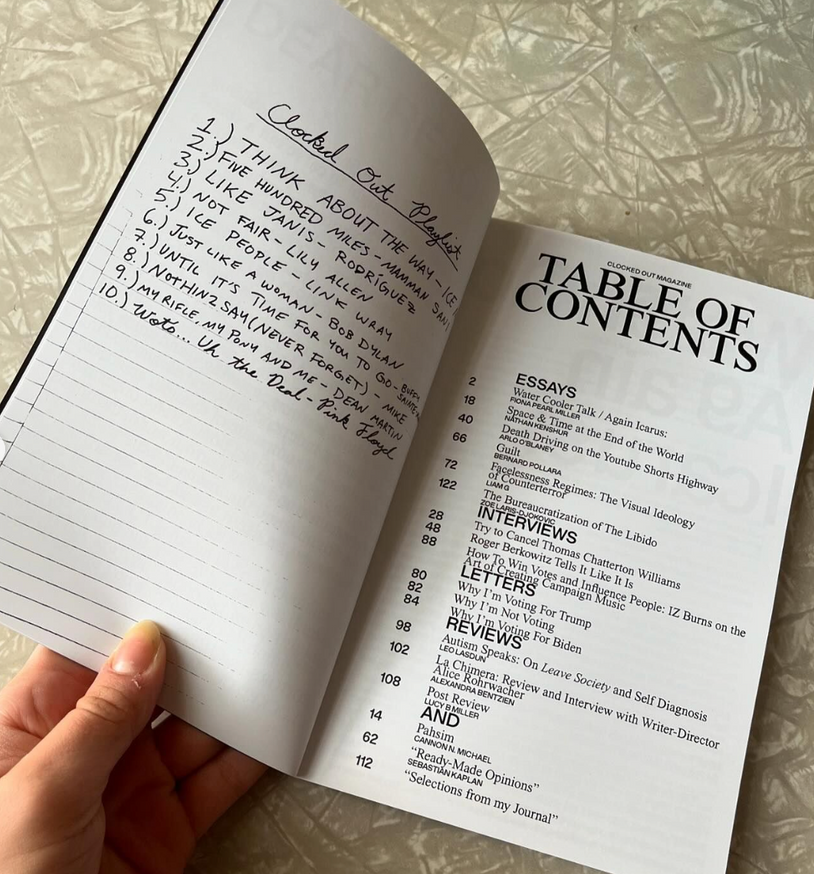 Clocked Out Playlist
1.) THINK ABOUT THE WAY - ICE
2.) FIVE HUNDRED MILES - MAMMAN SANI
3.) LIKE JANIS - RODRÍGUEZ
4.) NOT FAIR - LILY ALLEN
5.) ICE PEOPLE - LINK WRAY
6.) JUST LIKE A WOMAN - BOB DYLAN
7.) UNTIL IT'S TIME FOR YOU TO GO - BUFFY
8.) NOTHIN2SAY (NEVER FORGET) - MIKE
9.) MY RIFLE, MY PONY AND ME - DEAN MARTIN
10.) Wots... Uh the Deal - Pink Floyd
CLOCKED OUT MAGAZINE
TABLE OF
CONTENTS
ESSAYS
2 Water Cooler Talk / Again Icarus:
FIONA PEARL MILLER
18 Space & Time at the End of the World
NATHAN KENSHUR
40 Death Driving on the Youtube Shorts Highway
ARLO O'BLANEY
66 Guilt
BERNARD POLLARA
72 Facelessness Regimes: The Visual Ideology
of Counterterror
LIAM G
122 The Bureaucratization of The Libido
ZOE LARIS-DJOKOVIC
INTERVIEWS
28 Try to Cancel Thomas Chatterton Williams
48 Roger Berkowitz Tells It Like It Is
88 How To Win Votes and Influence People: IZ Burns on the
Art of Creating Campaign Music
LETTERS
80 Why I'm Voting For Trump
82 Why I'm Not Voting
84 Why I'm Voting For Biden
REVIEWS
98 Autism Speaks: On Leave Society and Self Diagnosis
LEO LASDUN
102 La Chimera: Review and Interview with Writer-Director
Alice Rohrwacher
ALEXANDRA BENTZIEN
108 Post Review
LUCY B MILLER
AND
14 Pahsim
CANNON N. MICHAEL
62 "Ready-Made Opinions"
SEBASTIÁN KAPLAN
112 "Selections from my Journal"